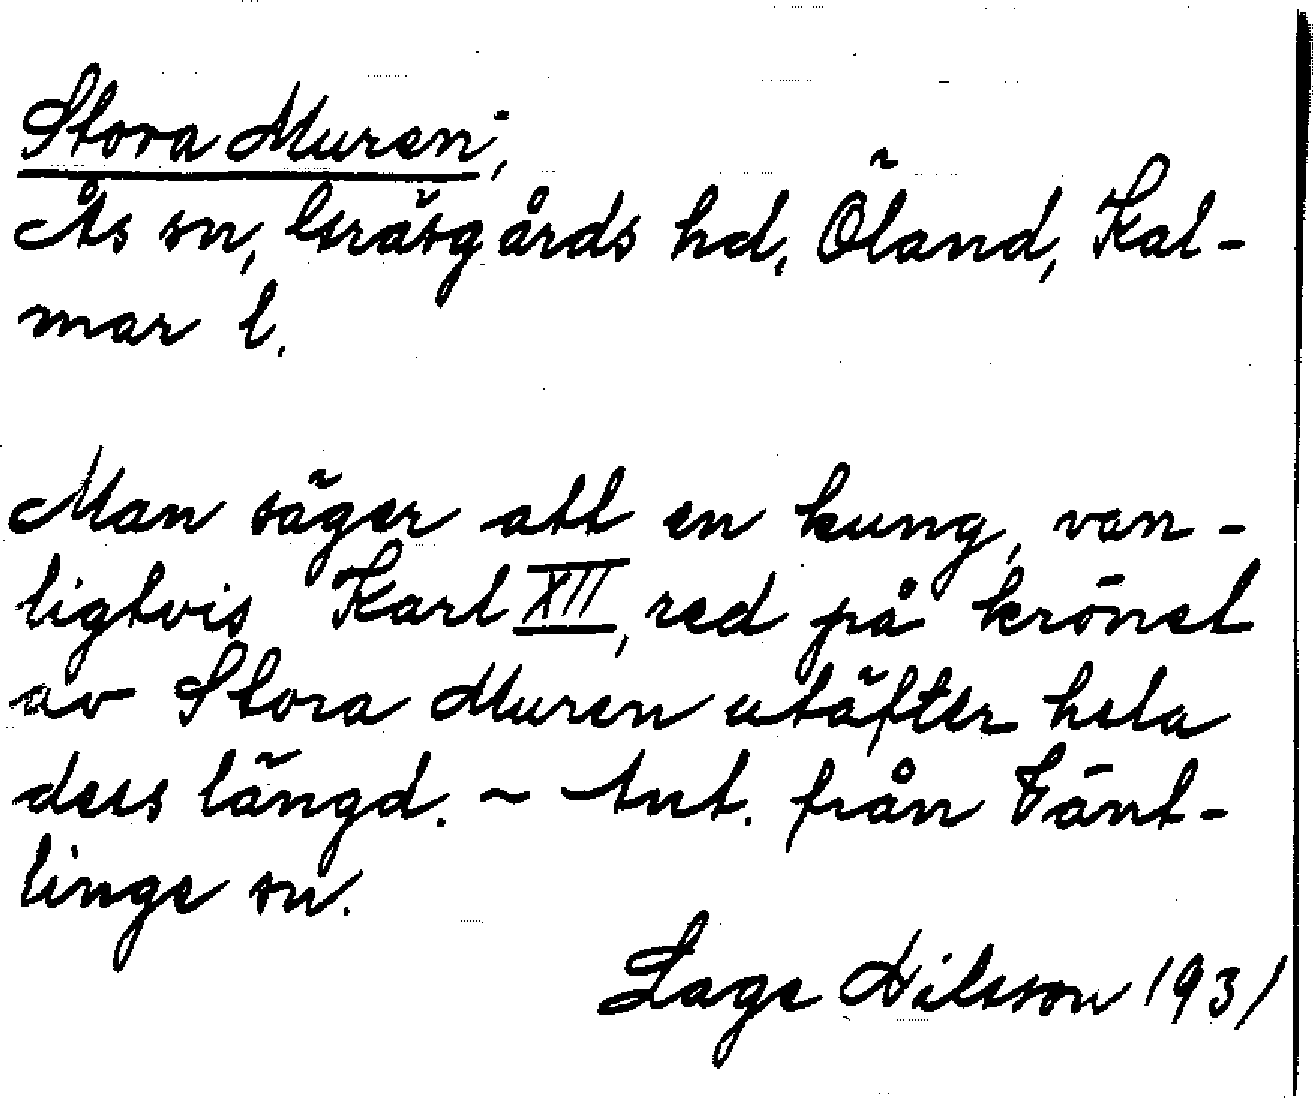 Stora Muren,
Ås sn, Gräsgårds hd, Öland, Kal-
mar l.
Man säger att en kung, van-
ligtvis Karl XII, red på krönet
av Stora Muren utäfter hela
dess längd. ~ Ant. från Vänt-
linge sn.
Lage Nilsson 1931